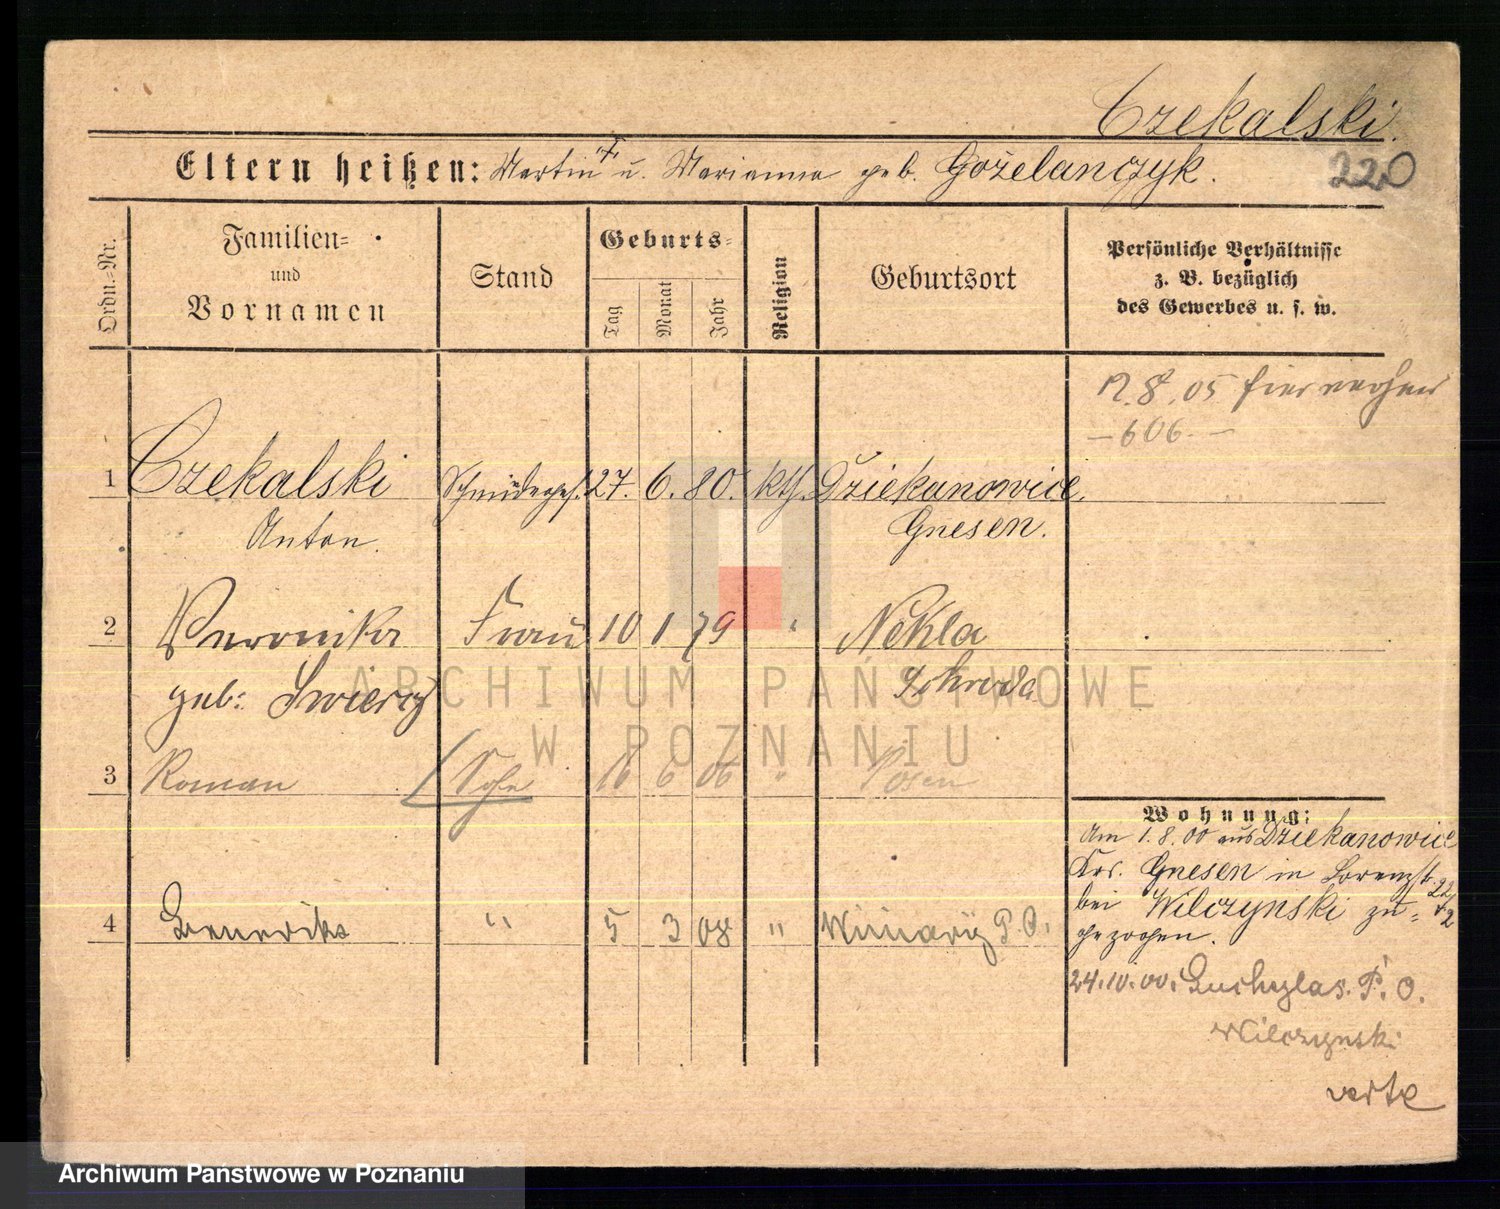 Czekalski.
220
Eltern heißen: Martin † u. Marianna geb. Gożelańczyk.
Ordn.-Nr.
Familien-
und
Vornamen
Stand
Geburts-
Tag
Monat
Jahr
Religion
Geburtsort
Persönliche Verhältnisse
z. B. bezüglich
des Gewerbes u. s. w.
8. 05
— 606. —
1 Czekalski Schmiedeges. 27. 6. 80. kth. Dziekanowice
Anton. Gnesen.
2 Veronika Frau 10 1 79 " Nekla
geb: Swiercz Schroda
3 Roman Sohn 16 6 06 " Posen
4 " 5 3 08 " P. O.
Wohnung:
Am 1. 8. 00 aus Dziekanowice
Krs. Gnesen in Lorenzstr. 22
bei Wilczynski zu-
gezogen.
24. 10. 00. P. O.
Wilczynski
verte
ARCHIWUM PAŃSTWOWE
W POZNANIU
Archiwum Państwowe w Poznaniu